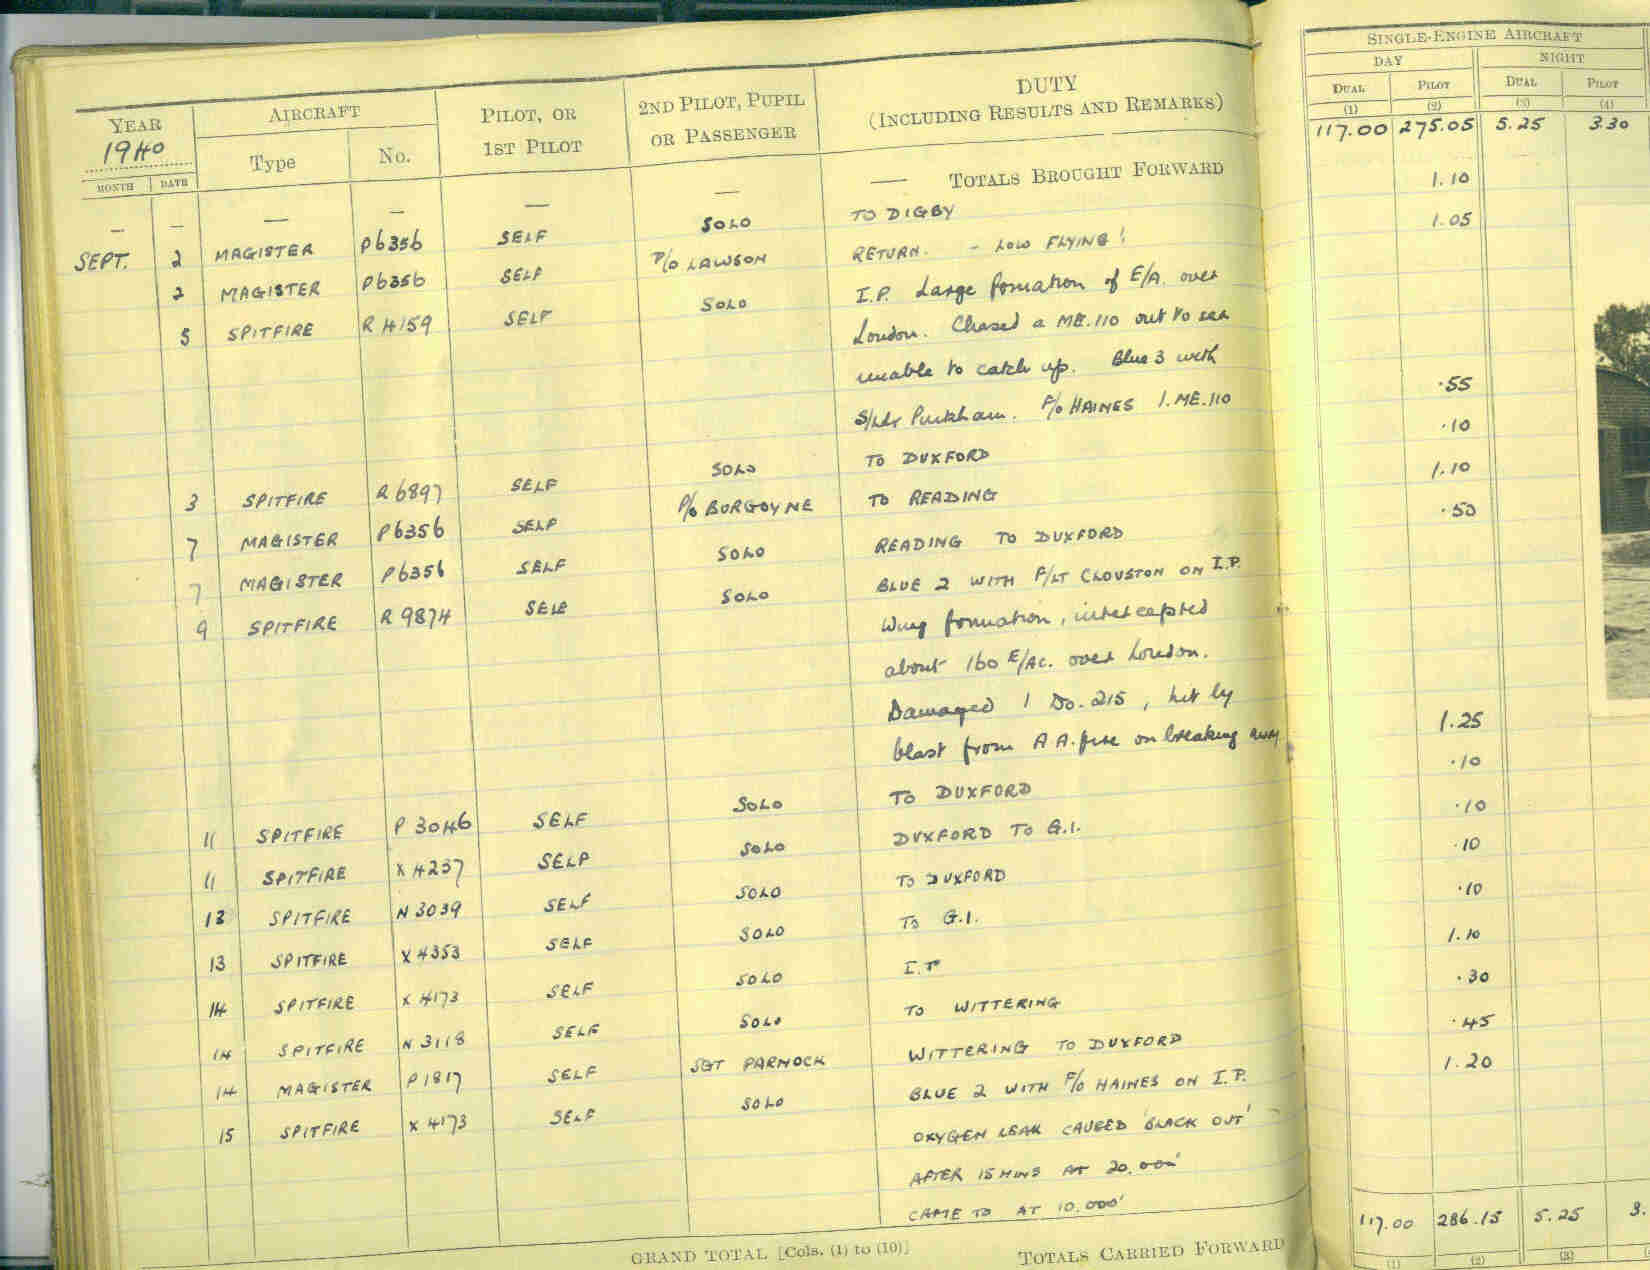 YEAR AIRCRAFT PILOT, OR 2ND PILOT, PUPIL DUTY
1940 Type No. 1ST PILOT OR PASSENGER (INCLUDING RESULTS AND REMARKS)
MONTH DATE
— — — — — — — TOTALS BROUGHT FORWARD
SEPT. 2 MAGISTER P6356 SELF SOLO TO DIGBY
2 MAGISTER P6356 SELF P/O LAWSON RETURN. - LOW FLYING!
5 SPITFIRE R4159 SELF SOLO I.P. Large formation of E/A. over
London. Chased a ME.110 out to sea
unable to catch up. Blue 3 with
S/Ldr Pinkham. F/O HAINES 1. ME.110
3 SPITFIRE R6897 SELF SOLO TO DUXFORD
7 MAGISTER P6356 SELF P/O BURGOYNE TO READING
7 MAGISTER P6356 SELF SOLO READING TO DUXFORD
9 SPITFIRE R9874 SELF SOLO BLUE 2 WITH F/LT CLOUSTON ON I.P.
Wing formation, intercepted
about 160 E/AC. over London.
Damaged 1 Do.215, hit by
blast from A A. fire on breaking away
11 SPITFIRE P3046 SELF SOLO TO DUXFORD
11 SPITFIRE X4237 SELF SOLO DUXFORD TO G.1.
13 SPITFIRE N3039 SELF SOLO TO DUXFORD
13 SPITFIRE X4353 SELF SOLO TO G.1.
14 SPITFIRE X4173 SELF SOLO I.P
14 SPITFIRE N3118 SELF SOLO TO WITTERING
14 MAGISTER P1817 SELF SGT PARNOCK WITTERING TO DUXFORD
15 SPITFIRE X4173 SELF SOLO BLUE 2 WITH F/O HAINES ON I.P.
OXYGEN LEAK CAUSED 'BLACK OUT'
AFTER 15 MINS AT 20,000'
CAME TO AT 10,000'
GRAND TOTAL [Cols. (1) to (10)] TOTALS CARRIED FORWARD
SINGLE-ENGINE AIRCRAFT
DAY NIGHT
DUAL PILOT DUAL PILOT
(1) (2) (3) (4)
117.00 275.05 5.25 3.30
1.10
1.05
.55
.10
1.10
.50
1.25
.10
.10
.10
.10
1.10
.30
.45
1.20
117.00 286.15 5.25 3.
(1) (2) (3)